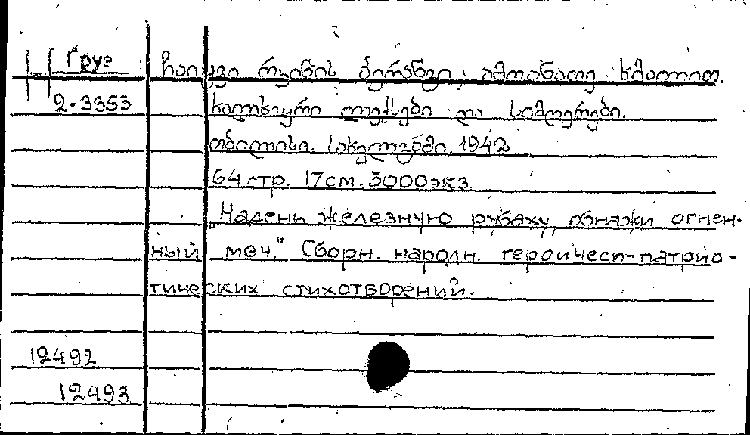 Груз
ჩაიცვი რკინის პერანგი, ამოიღე ხმალიო.
2.3353
ხალხური ლექსები და სიმღერები.
თბილისი. სახელგამი, 1942
64 стр. 17 см. 3000 экз.
"Надень железную рубаху, обнажи огнен-
ный меч." Сборн. народн. героическ-патрио-
тических стихотворений.
12492
12493